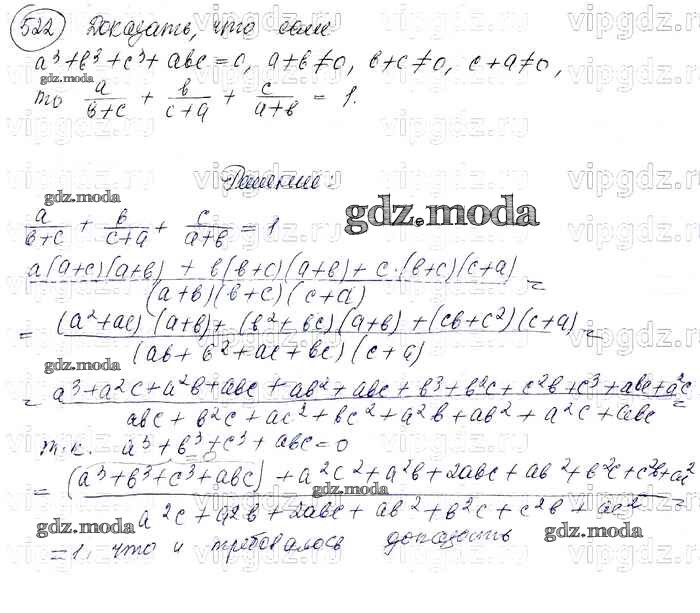 522 Доказать, что если
a³+b³+c³+abc=0, a+b≠0, b+c≠0, c+a≠0,
gdz.moda
то a/(b+c) + b/(c+a) + c/(a+b) = 1.
Решение:
gdz.moda
a/(b+c) + b/(c+a) + c/(a+b) = 1
gdz.moda
(a(a+c)(a+b) + b(b+c)(a+b) + c·(b+c)(c+a))/((a+b)(b+c)(c+a)) =
= ((a²+ac)(a+b) + (b²+bc)(a+b) + (cb+c²)(c+a))/((ab+b²+ac+bc)(c+a)) =
gdz.moda
= (a³+a²c+a²b+abc + ab²+abc+b³+b²c+c²b+c³+abc+a²c)/(abc+b²c+ac²+bc²+a²b+ab²+a²c+abc)
т.к. a³+b³+c³+abc=0
=0
= ((a³+b³+c³+abc) + a²c²+a²b+2abc+ab²+b²c+c²b+ac²)/(a²c+a²b+2abc+ab²+b²c+c²b+ac²) =
gdz.moda
gdz.moda
gdz.moda
=1, что и требовалось доказать